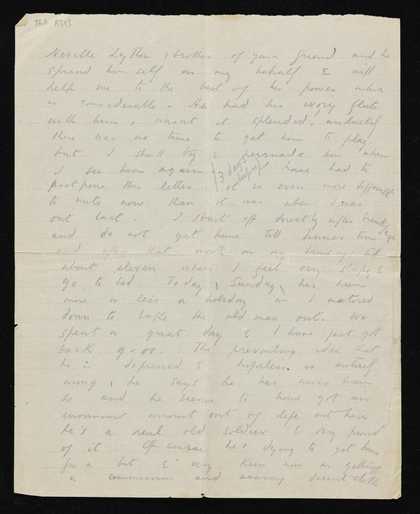 Neville Lytton, brother of your friend and he
spread himself on my behalf & will
help me to the best of his power which
is considerable. He had his ivory flute
with him & wasn't it splendid, unluckily
there was no time to get him to play
but I shall try & persuade him when
I see him again. I have had to
3 days before
postpone this letter. It is even more difficult
to write now than it was when I was
out last. I start off directly after
and do not get home till dinner time
and after that work on my till
about eleven when I feel very sleepy &
go to bed. Today, Sunday, has been
more or less a holiday as I motored
down to the old man out. We
spent a great day & I have just got
back 9.00. The prevailing idea that
he is depressed & hopeless is entirely
wrong, he says he has never been
so and he seems to have got an
enormous amount out of life out here
he's a real old soldier & very proud
of it. Of course he's dying to get home
for a bit & very keen now on getting
a commission and wearing decent cloth